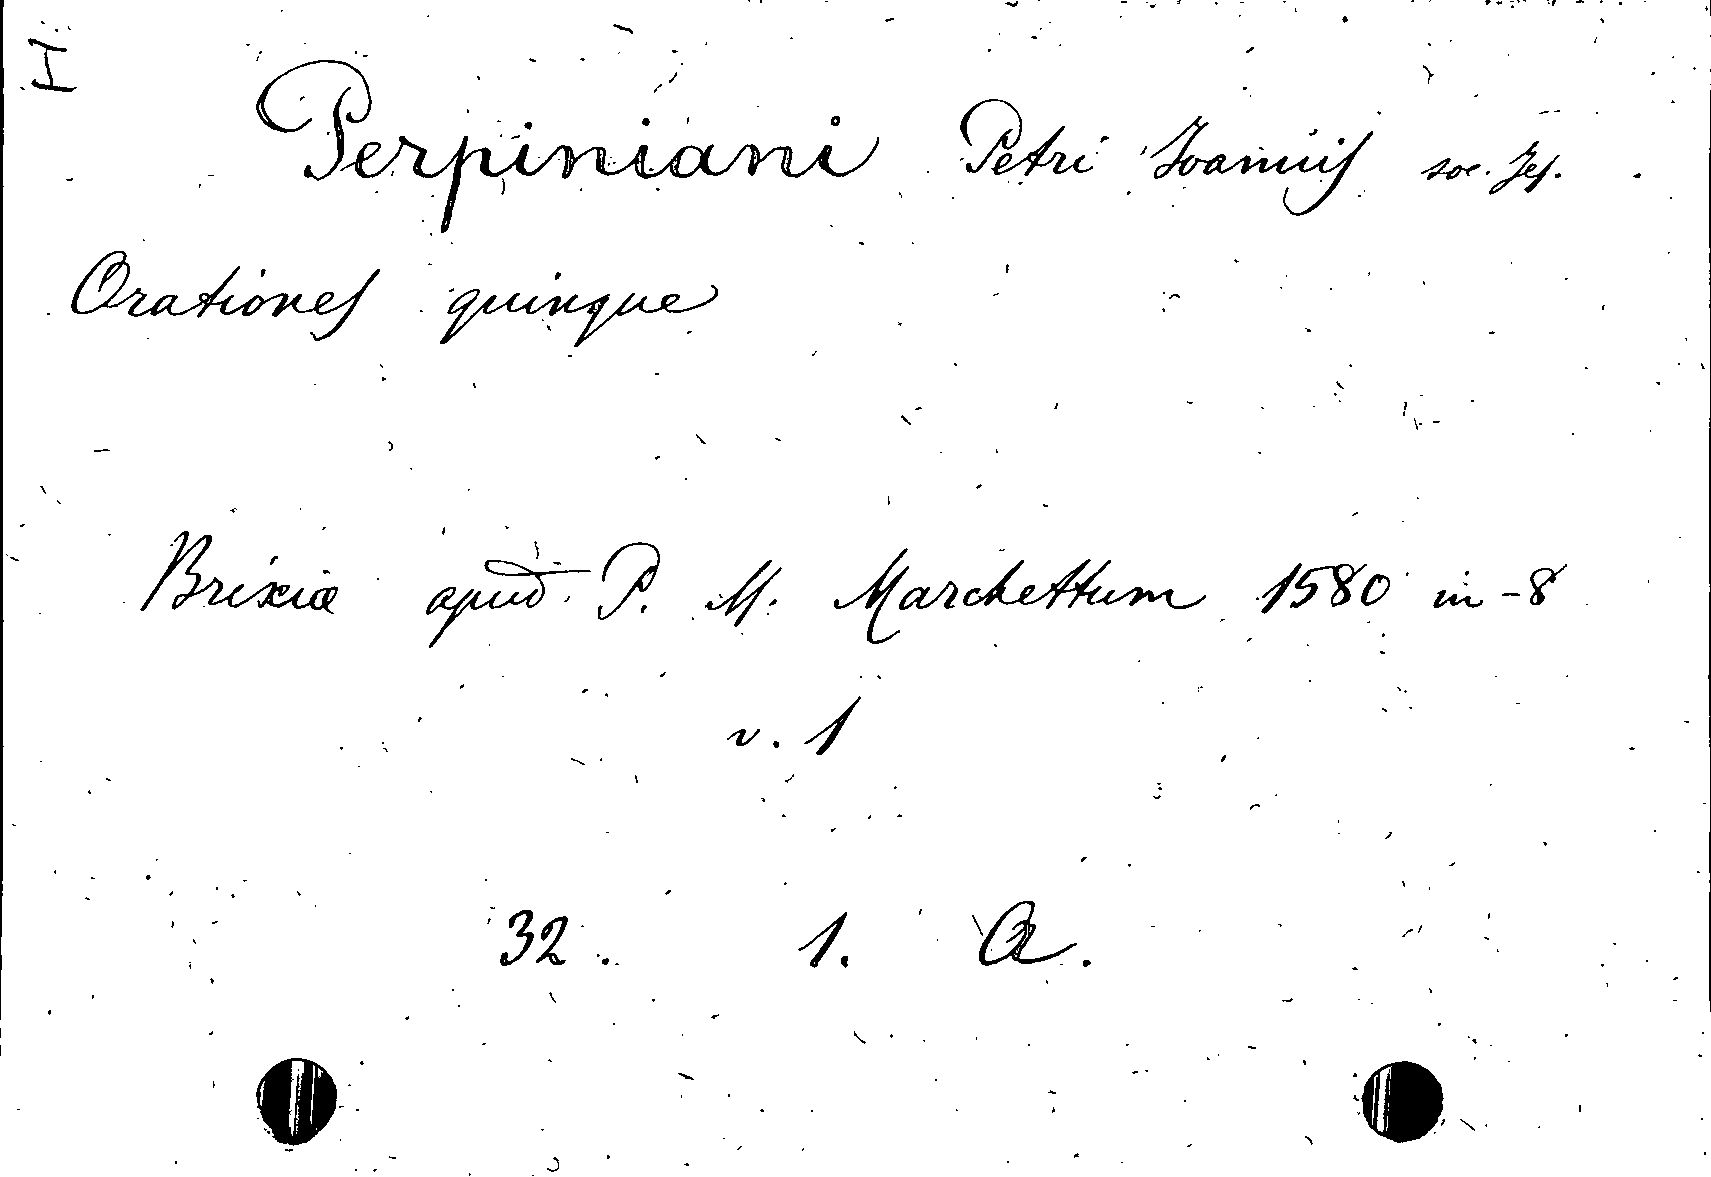 H.
Perpiniani Petri Ioannis soc. Jes.
Orationes quinque
Brixiæ apud P. M. Marchettum 1580 in-8
v. 1
32. 1. A.